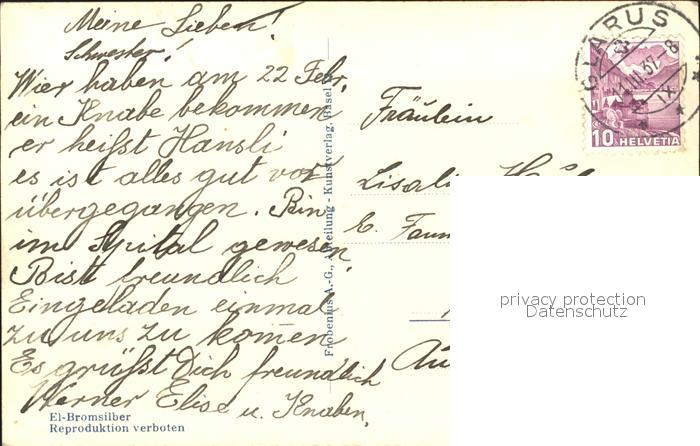 Meine Lieben!
Schwester!
Wier haben am 22 Febr.
ein Knabe bekommen
er heißt Hansli
es ist alles gut vor
übergegangen. Bin
im Spital gewesen
Bist freundlich
Eingeladen einmal
zu uns zu komen
Es grüßt Dich freundlich
Werner Elise u. Knaben.
El-Bromsilber
Reproduktion verboten
Frobenius A.-G., Abteilung - Kunstverlag, Basel
Fräulein
b.
GLARUS
10 HELVETIA
privacy protection
Datenschutz